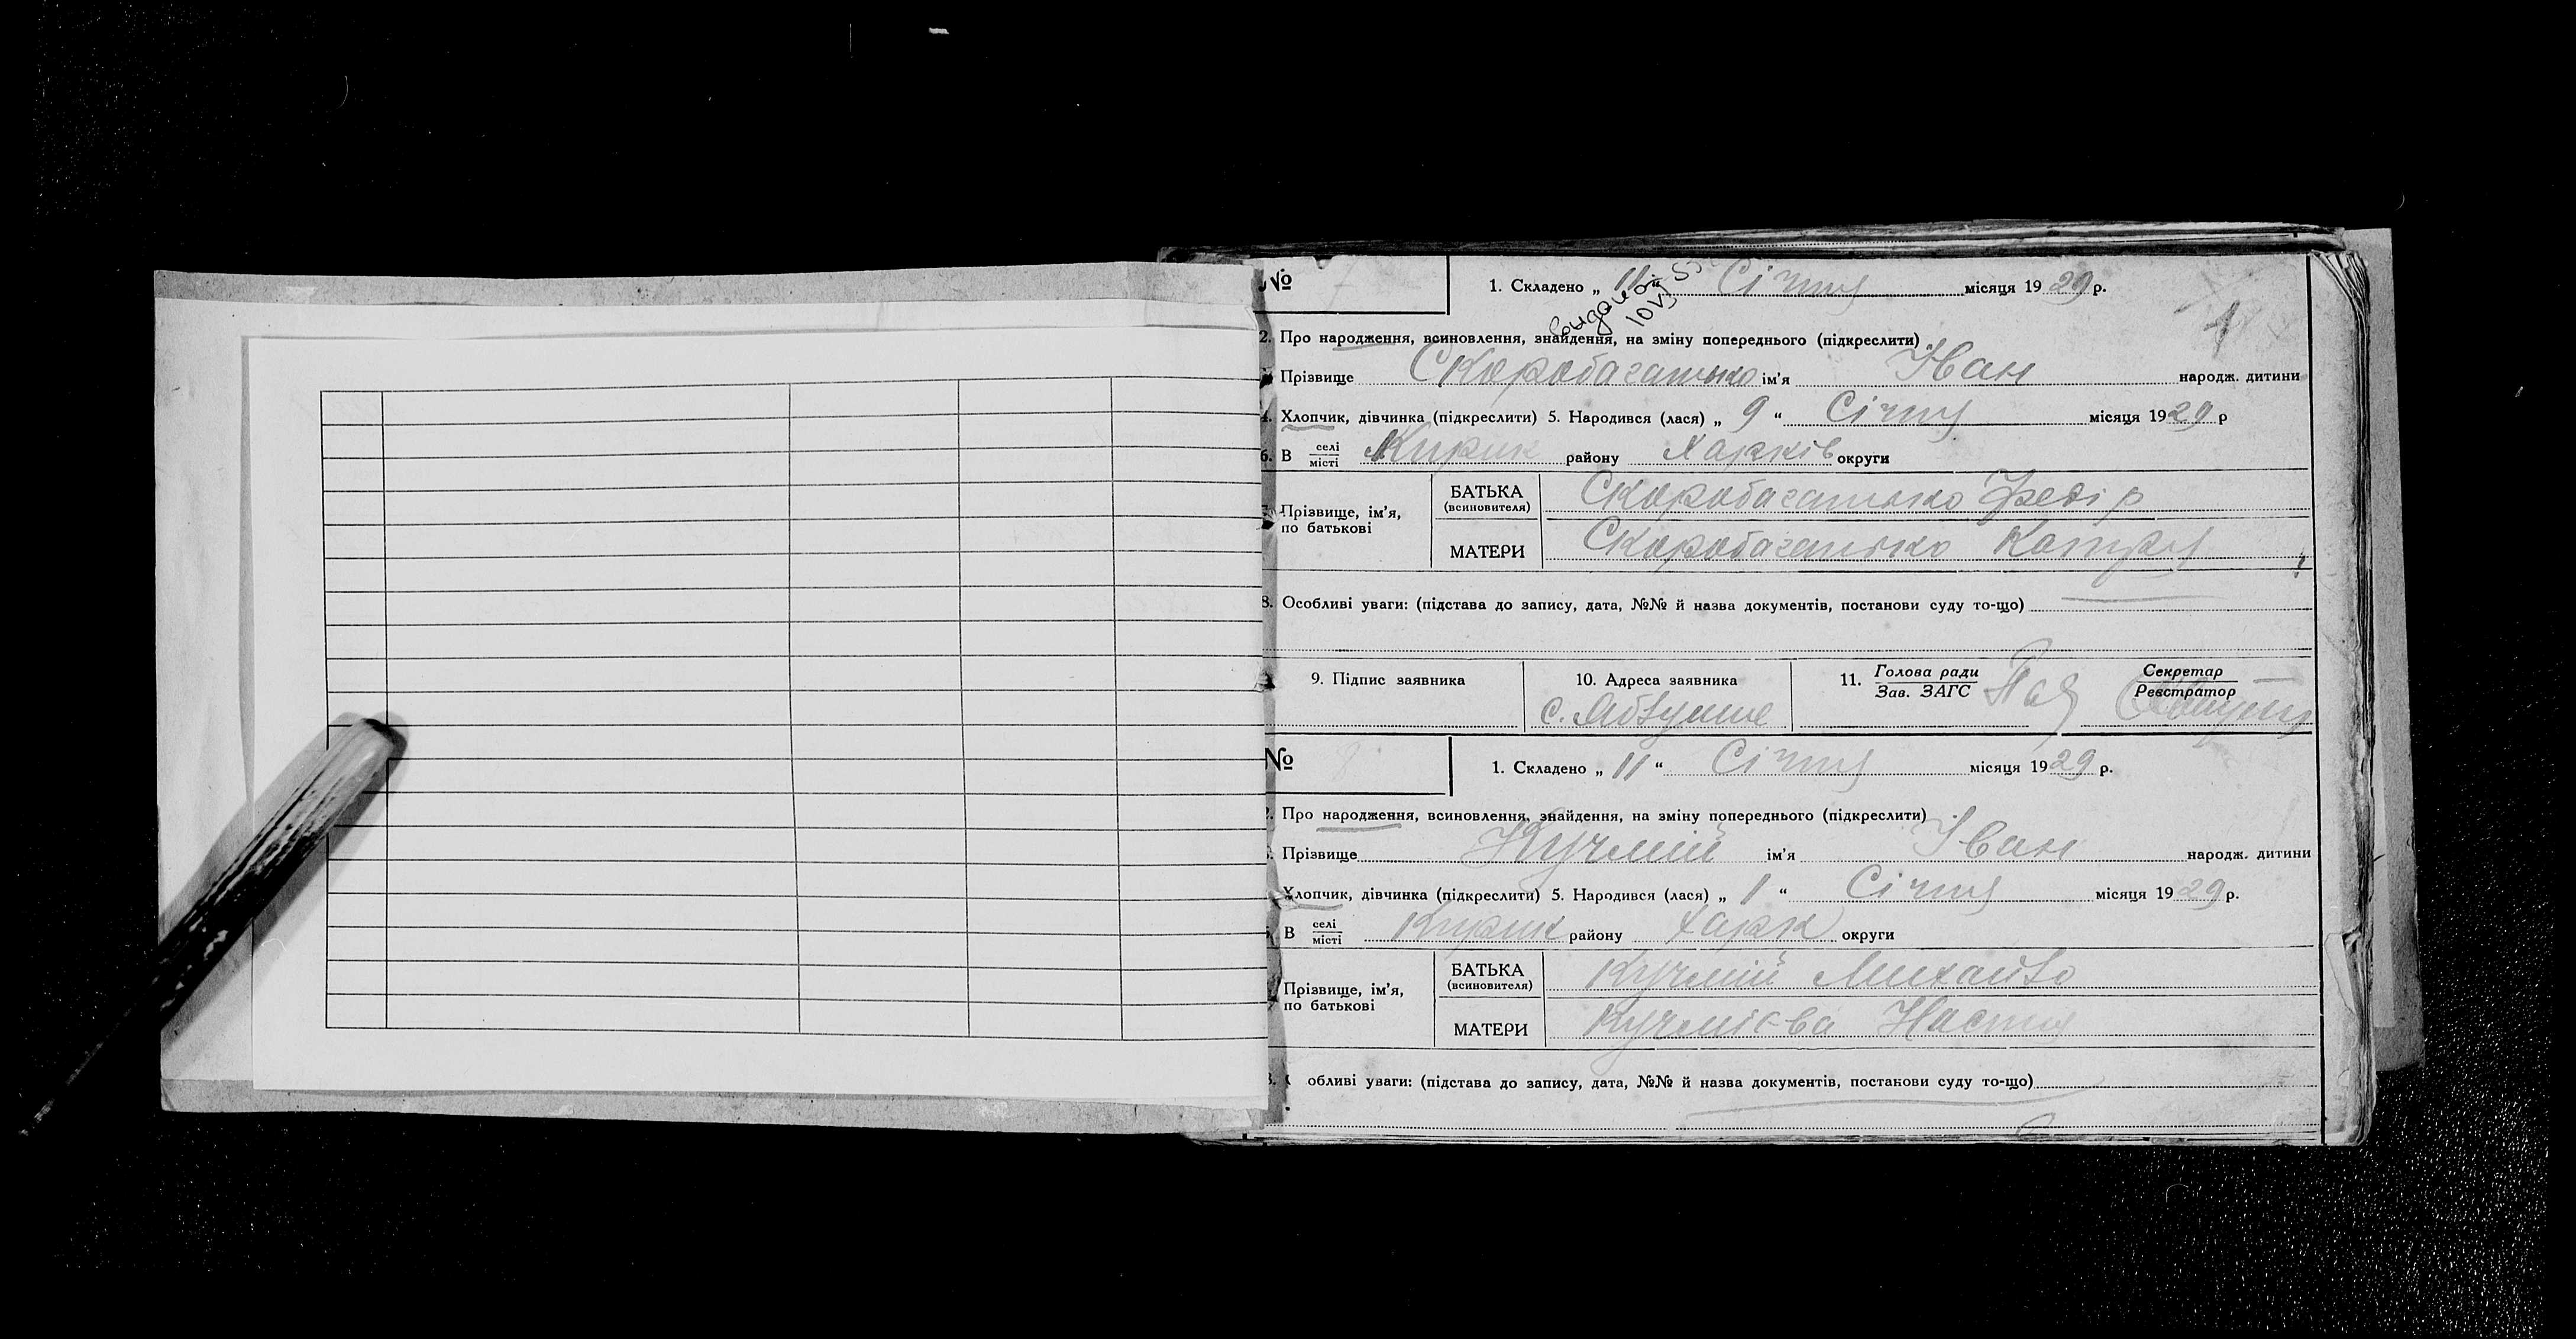 № 7 1. Складено „ 11 “ Січня місяця 1929 р.
1
2. Про народження, всиновлення, знайдення, на зміну попереднього (підкреслити)
Прізвище Скоробагатько ім'я Іван народж. дитини
4. Хлопчик, дівчинка (підкреслити) 5. Народився (лася) „ 9 “ Січня місяця 1929 р
6. В селі місті району Харків округи
Прізвище, ім'я, по батькові
БАТЬКА (всиновителя) Скоробагатько Федір
МАТЕРИ Скоробагатько Катря
8. Особливі уваги: (підстава до запису, дата, №№ й назва документів, постанови суду то-що)
9. Підпис заявника 10. Адреса заявника 11. Голова ради Зав. ЗАГС Секретар Реєстратор
с.
№ 8 1. Складено „ 11 “ Січня місяця 1929 р.
Про народження, всиновлення, знайдення, на зміну попереднього (підкреслити)
Прізвище Кучмій ім'я Іван народж. дитини
Хлопчик, дівчинка (підкреслити) 5. Народився (лася) „ 1 “ Січня місяця 1929 р.
В селі місті району Харк округи
Прізвище, ім'я, по батькові
БАТЬКА (всиновителя) Кучмій Михайло
МАТЕРИ Кучмієва Настя
обливі уваги: (підстава до запису, дата, №№ й назва документів, постанови суду то-що)